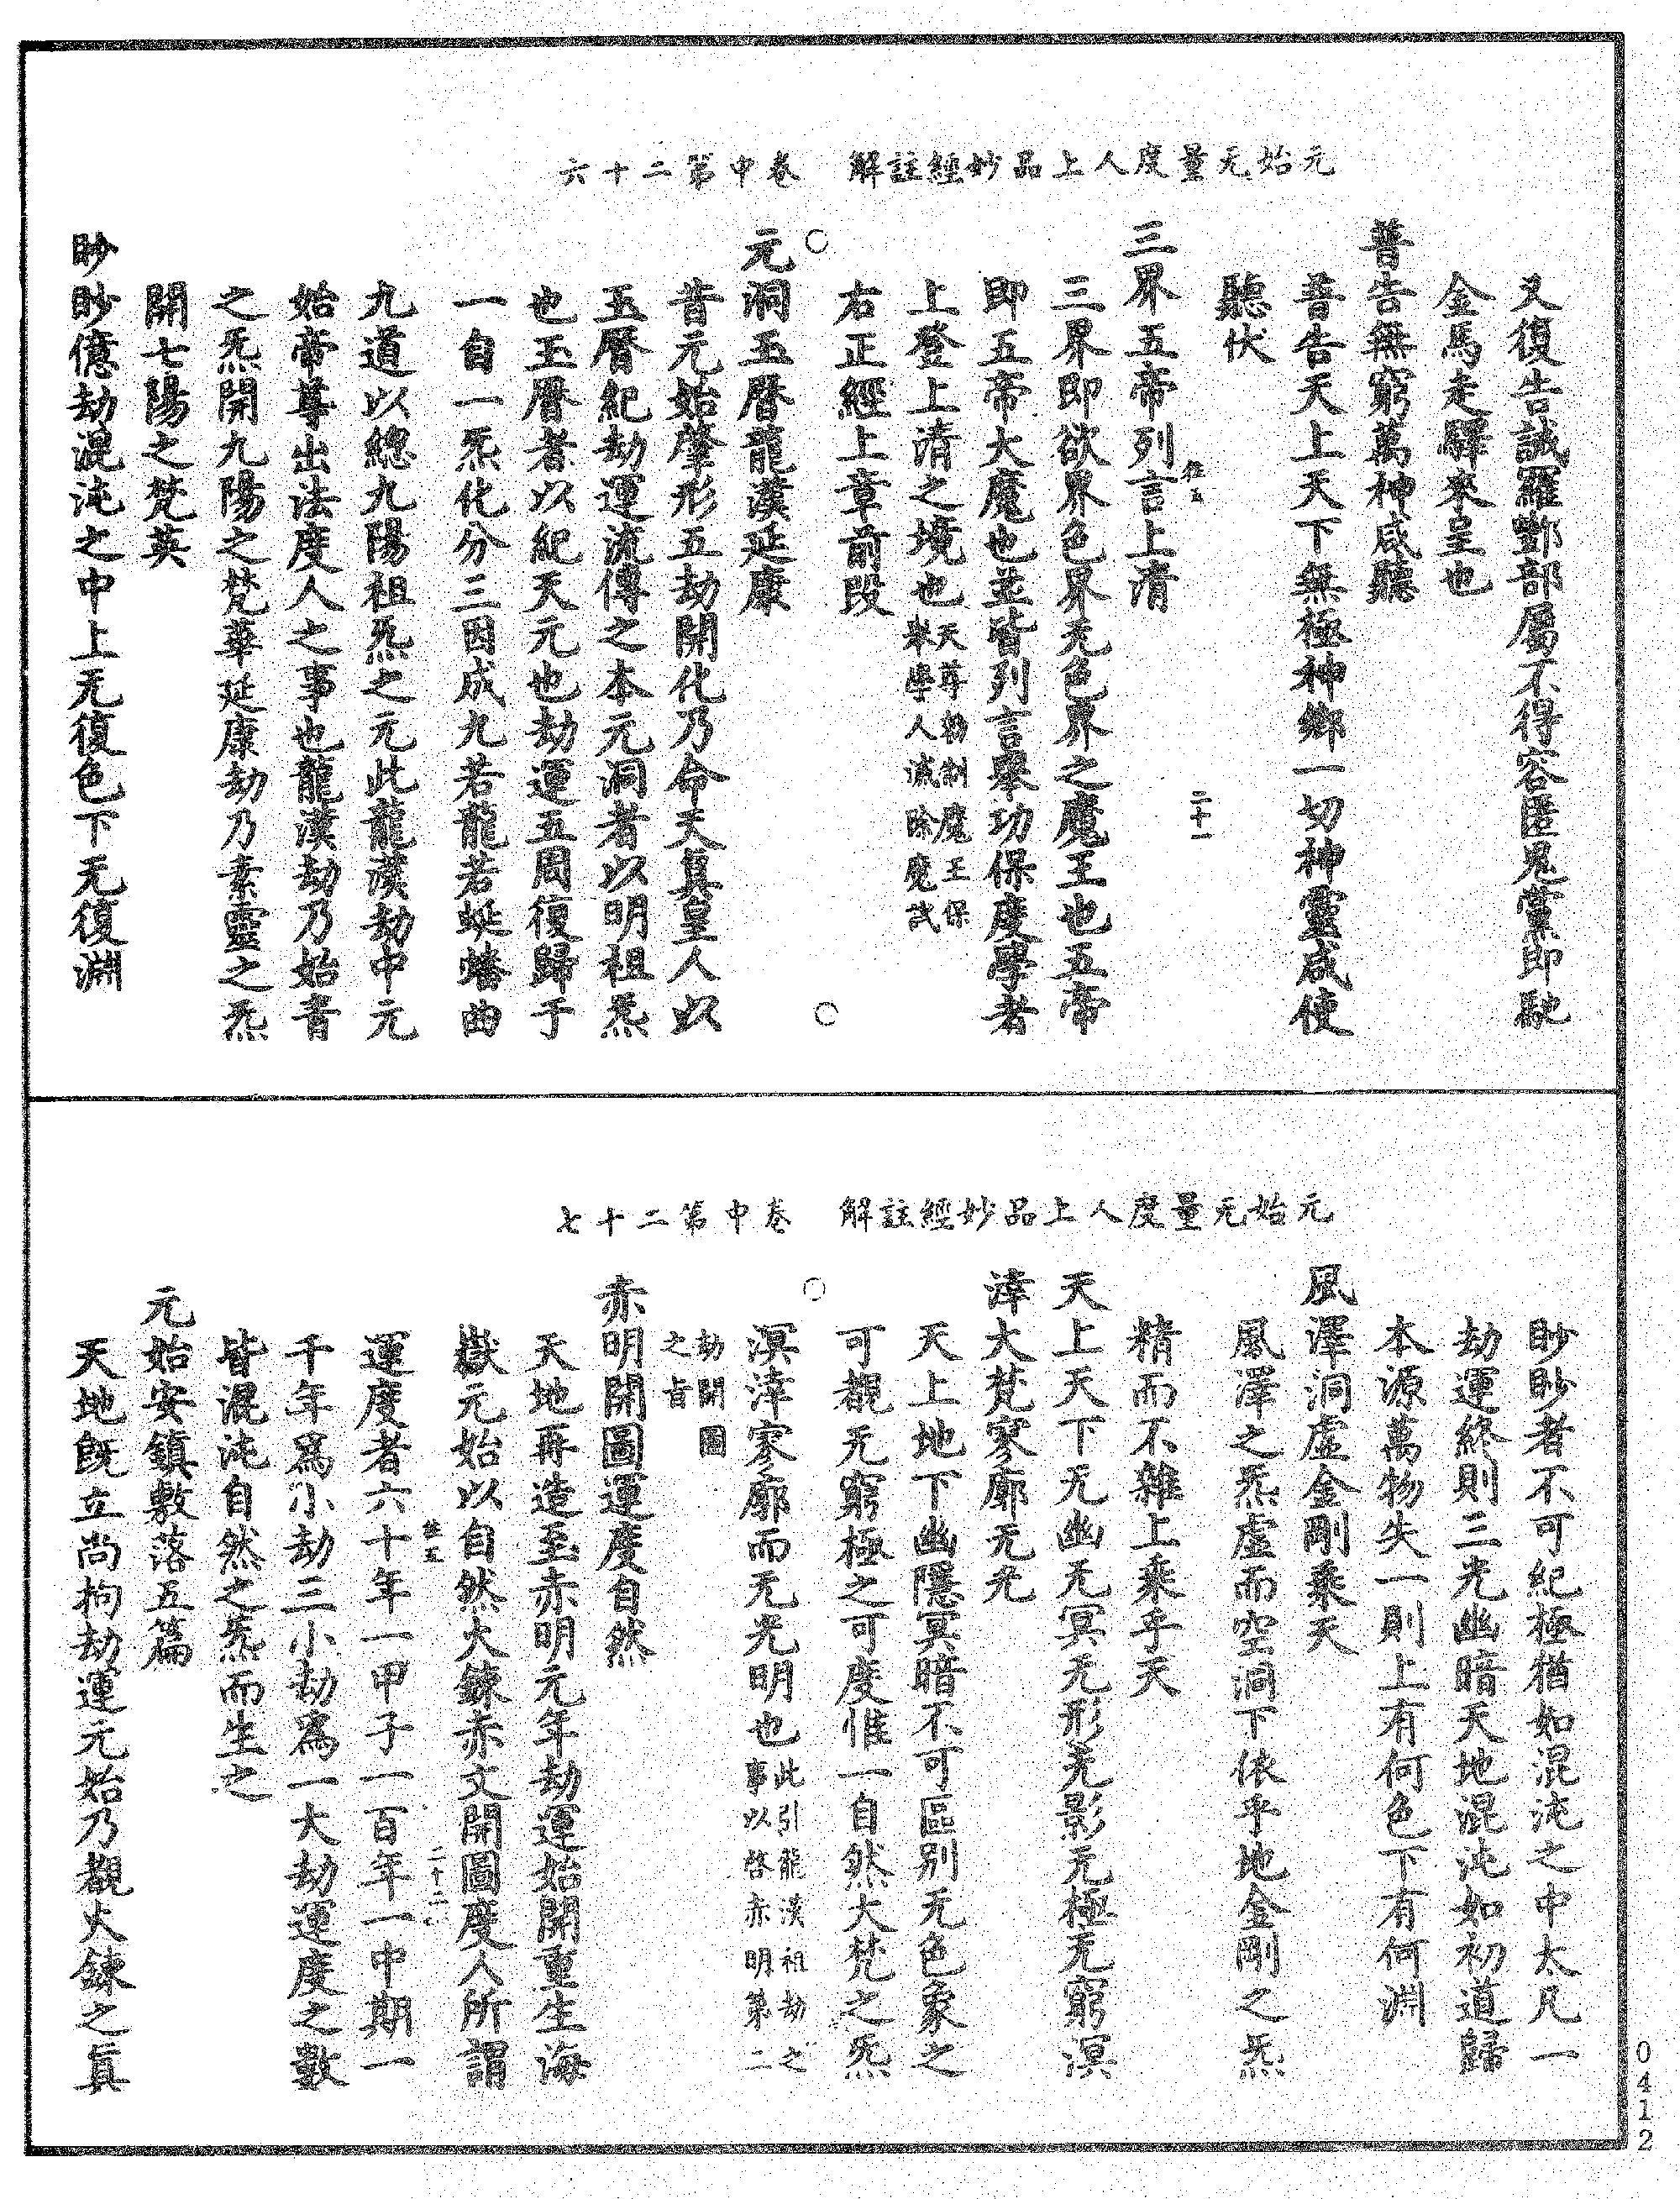 元始无量度人上品妙經註解　卷中第二十六
又復告誡羅酆部屬不得容匿鬼黨即馳
金馬走驛來呈也
普告無窮萬神咸聽
普告天上天下無極神鄉一切神靈咸使
聽伏
二十一
三界五帝列言上清
三界即欲界色界无色界之魔王也五帝
即五帝大魔也並皆列言舉功保度學者
上登上清之境也天尊勑制魔王保
舉學人滅除魔試
右正經上章前段
元洞玉曆龍漢延康
昔元始肇形五劫開化乃命天真皇人以
玉曆紀劫運流傳之本元洞者以明祖炁
也玉曆者以紀天元也劫運五周復歸于
一自一炁化分三因成九若龍若蜒蟠曲
九道以總九陽祖炁之元此龍漢劫中元
始帝尊出法度人之事也龍漢劫乃始青
之炁開九陽之梵華延康劫乃素靈之炁
開七陽之梵英
眇眇億劫混沌之中上无復色下无復淵
元始无量度人上品妙經註解　卷中第二十七
眇眇者不可紀極猶如混沌之中太凡一
劫運終則三光幽暗天地混沌如初道歸
本源萬物失一則上有何色下有何淵
風澤洞虛金剛乘天
風澤之炁虛而空洞下依乎地金剛之炁
精而不雜上乘乎天
天上天下无幽无冥无形无影无極无窮溟
涬大梵寥廓无光
天上地下幽隱冥暗不可區別无色象之
可觀无窮極之可度惟一自然大梵之炁
溟涬寥廓而无光明也此引龍漢祖劫之
事以啓赤明第二
劫開圖
之旨
赤明開圖運度自然
天地再造至赤明元年劫運始開重生海
嶽元始以自然火鍊赤文開圖度人所謂
二十二
運度者六十年一甲子一百年一中期一
千年爲小劫三小劫爲一大劫運度之數
皆混沌自然之炁而生之
元始安鎮敷落五篇
天地既立尚拘劫運元始乃觀火鍊之真
0412